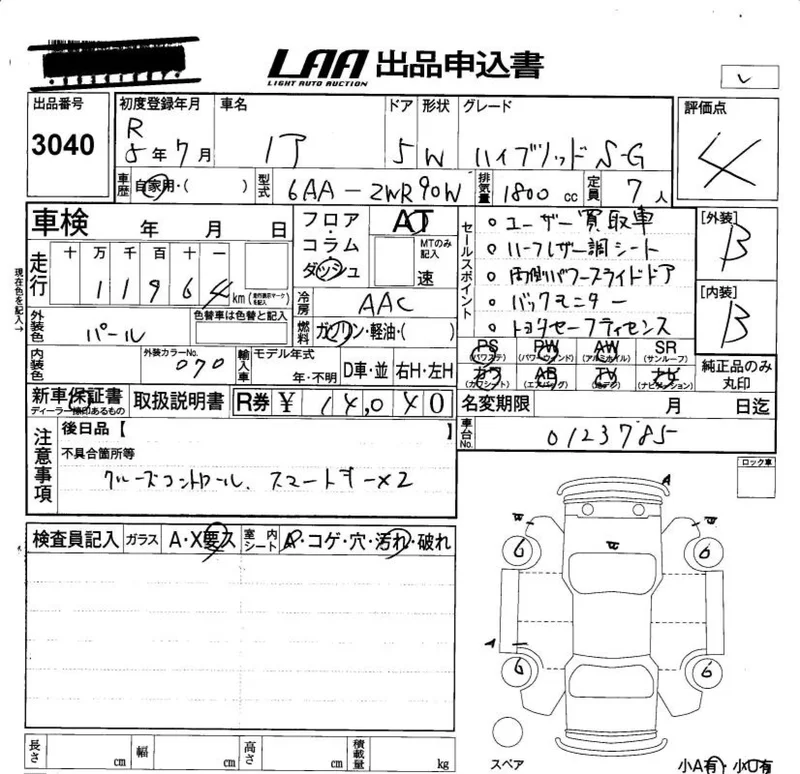 LAA 出品申込書
LIGHT AUTO AUCTION
出品番号 初度登録年月 車名 ドア 形状 グレード 評価点
3040 R 5年 7月 5 W ハイブリッド S-G 4
車歴 自家用・( ) 型式 6AA-ZWR90W 排気量 1800 cc 定員 7 人
車検 年 月 日 フロア・コラム・ダッシュ AT MTのみ記入 速
セールスポイント
○ユーザー買取車
○ハーフレザー調シート
○両側パワースライドドア
○バックモニター
○トヨタセーフティセンス
[外装] B
[内装] B
現在色を記入→
走行 十 万 千 百 十 一
11964 km (走行表示マークを記入)
冷房 AAC
外装色 パール 色替車は色替と記入 燃料 ガソリン・軽油・( )
内装色 外装カラーNo. 070 輸入車 モデル年式 年・不明 D車・並 右H・左H
PS (パワステ) PW (パワーウィンド) AW (アルミホイル) SR (サンルーフ)
カワ (カワシート) AB (エアバッグ) TV (地デジ) ナビ (ナビゲーション)
純正品のみ丸印
新車保証書 ディーラー捺印あるもの 取扱説明書 R券 ¥ 14,040
名変期限 月 日迄
車台No. 0123785
注意事項
後日品【 】
不具合箇所等
クルーズコントロール、スマートキー×2
ロック車
検査員記入 ガラス A・X要ス 室内シート A・コゲ・穴・汚れ・破れ
A
W W
W
6 6
A
6 6
スペア
小A有・小U有
長さ cm 幅 cm 高さ cm 積載量 kg